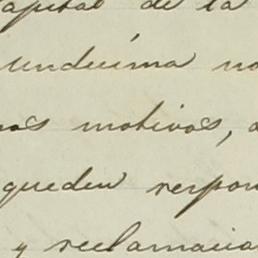 apital de la
undécima no
nos motivos, a
queden respon
y reclamacio